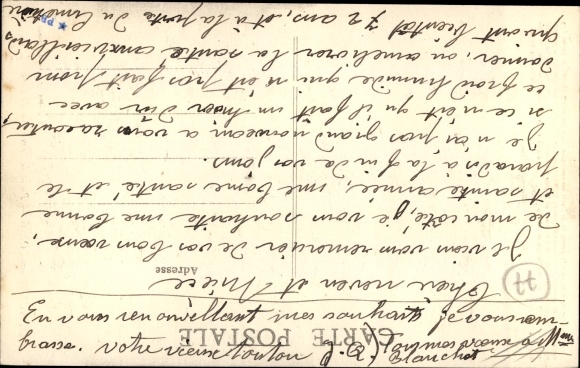 Cher neveu et Nièce
Je viens vous remercier de vos bons voeux,
de mon côté, je vous souhaite une bonne
et sainte année, une bonne santé et le
paradis à la fin de vos jours.
Je n'ai pas grand nouveau a vous raconter,
si ce n'est qu'il fait un hiver dur avec
ce froid humide qui n'est pas fait pour
donner, ou améliorer la santé aux vieillards
qui ont bientôt 72 ans, et à la porte du Cimetière
En vous renouvellant mes souhaits je vous em
brasse. Votre vieux tonton J. B.
Tous mes voeux à Mme
Blanchet
CARTE POSTALE
Adresse
77